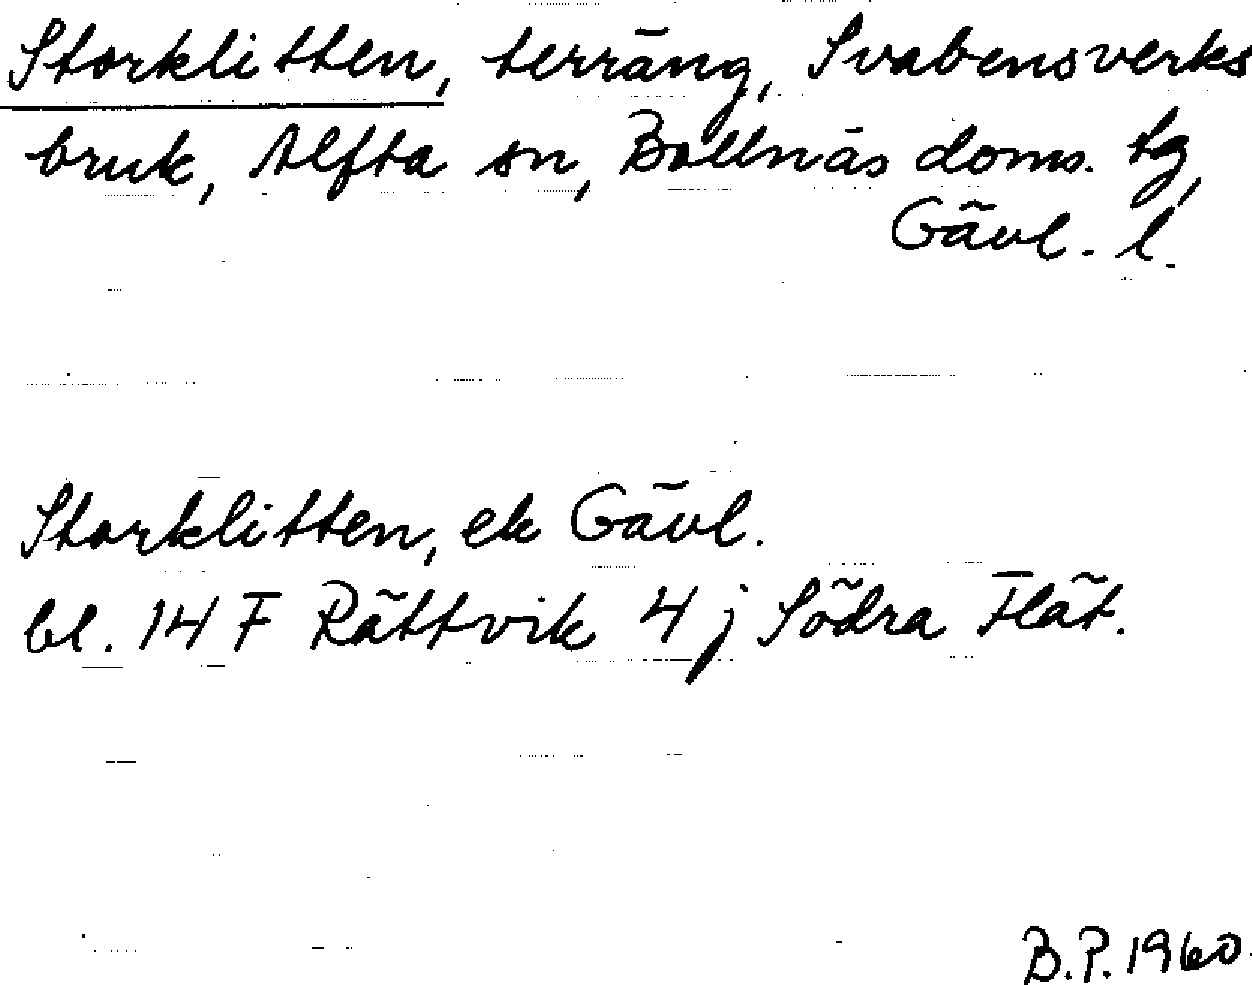 Storklitten, terräng, Svabensverks
bruk, Alfta sn, Bollnäs doms. tg,
Gävl. l.
Storklitten, ek Gävl.
bl. 14 F Rättvik 4 j Södra Flät.
B.P. 1960.